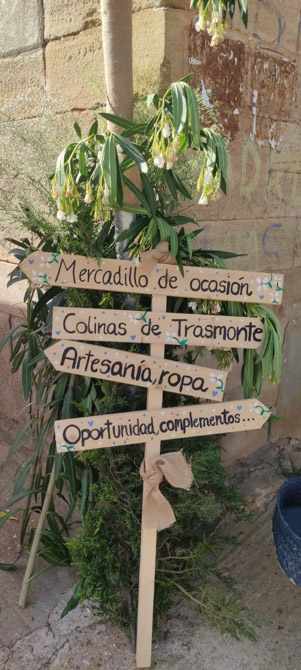 Mercadillo de ocasión
Colinas de Trasmonte
Artesanía, ropa
Oportunidad, complementos...